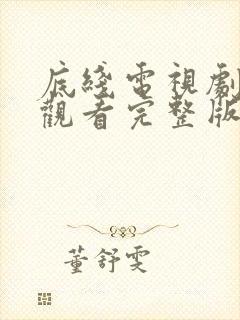 底綫電視劇
觀看完整版
董舒雯